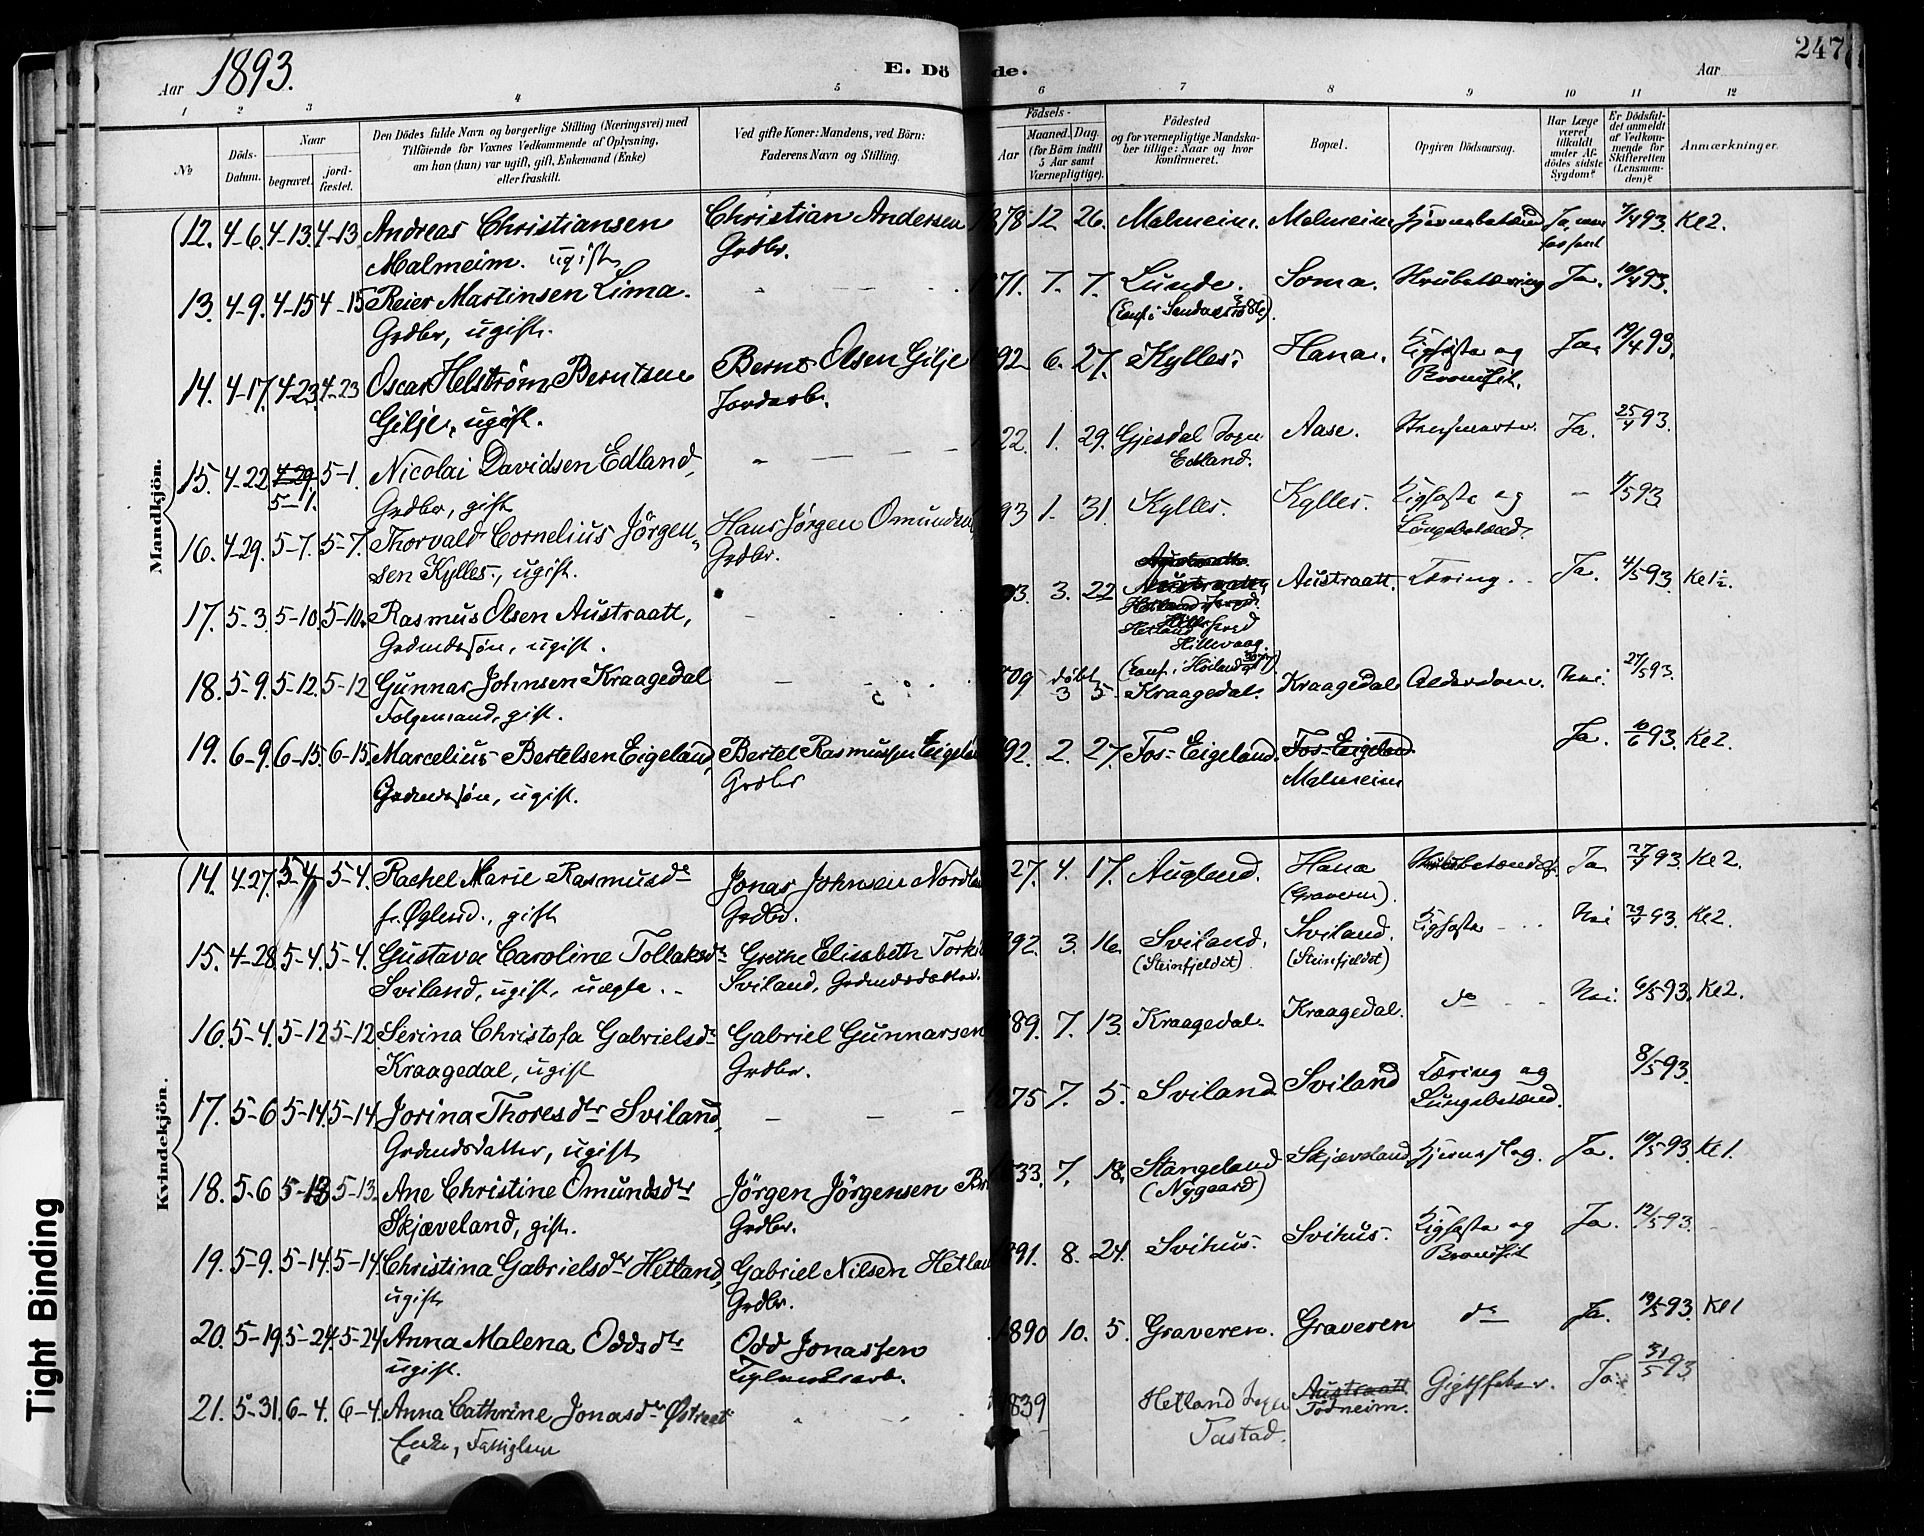 Aar 1893.
E. Dö de.
Aar
247
1 2 3 4 5 6 7 8 9 10 11 12
No
Döds-Datum.
Naar
begravet.
jord-fæstet.
Den Dödes fulde Navn og borgerlige Stilling (Næringsvei) med
Tilföiende for Voxnes Vedkommende af Oplysning,
om han (hun) var ugift, gift, Enkemand (Enke)
eller fraskilt.
Ved gifte Koner: Mandens, ved Börn:
Faderens Navn og Stilling.
Födsels-
Aar
Maaned. Dag.
(for Börn indtil
5 Aar samt
Værnepligtige).
Födested
og for værnepligtige Mandska-
ber tillige: Naar og hvor
konfirmeret.
Bopæl.
Opgiven Dödsaarsag.
Har Læge
været
tilkaldt
under Af-
dödes sidste
Sygdom?
Er Dödsfal-
det anmeldt
af Vedkom-
mende for
Skifteretten
(Lensman-
den)?
Anmærkninger.
Mandkjön.
12. 4-6. 4-13. 4-13. Andreas Christiansen Christian Andersen 1878 12 26. Malmeim. Malmeim Hjernebetænd Ja, 7/4 93. Kl 2.
Malmeim. ugift Grdbr.
13. 4-9. 4-15 4-15 Reier Martinsen Lima. 71. 7. 7. Lunde. Soma. Strubetæring Ja. 10/4 93.
Grdbr, ugift.
14. 4-17. 4-23. 4-23 Oscar Helström Berntsen Bernt Olsen Gilje 92 6. 27. Kylles. Hana. Kighoste og Ja 19/4 93.
Gilje, ugift. Jordarb. Bronchit.
15. 4-22 4-29. 5-1. Nicolai Davidsen Edland, 22. 1. 29. Gjesdal Sogn Aase. Ja. 25/4 93.
5-1. Grdbr, gift Edland.
16. 4-29. 5-7. 5-7. Thorvald Cornelius Jörgen- Hans Jörgen Omundsen 93 1. 31. Kylles. Kylles. Kighoste og - 1/5 93
sen Kylles, ugift. Grdbr. Lungebetænd.
17. 5-3. 5-10. 5-10. Rasmus Olsen Austraatt, 73. 3. 22 Austraatt, Austraatt. Tæring. Ja. 4/5 93. Kl 1½.
Grdmdssön, ugift. Hetland
Hillevaag.
18. 5-9. 5-12. 5-12 Gunnar Johnsen Kraagedal 09 döbt 3 5. Kraagedal. Kraagedal Alderdom. Nei. 27/5 93.
Folgemand, gift.
19. 6-9. 6-15. 6-15. Marcelius Bertelsen Eigeland, Bertel Rasmussen Eigeland 92. 2. 27. Fos-Eigeland. Fos-Eigeland Ja. 10/6 93. Kl 2.
Grdmdssön, ugift. Grdbr Malmeim
Kvindekjön.
14. 4-27. 5-4 5-4. Rachel Marie Rasmusdr Jonas Johnsen 27. 4. 17. Augland. Hana Ja 27/4 93 Kl 2.
f. Öglend., gift Grdbr. (Graveren).
15. 4-28. 5-4. 5-4. Gustava Caroline Tollaksdr Grethe Elisabeth 92. 3. 16. Sviland. Sviland. Kighoste Nei 29/4 93. Kl 2.
Sviland, ugift, uægte. Sviland, Grdmdsdatter. (Steinfjeldet) (Steinfjeldet)
16. 5-4. 5-12 5-12 Serina Christofa Gabrielsdr Gabriel Gunnarsen 89. 7. 13. Kraagedal. Kraagedal. do Nei. 6/5 93. Kl 2.
Kraagedal, ugift Grdbr.
17. 5-6 5-14. 5-14. Jorina Thoresdtr Sviland, 75 7. 5. Sviland Sviland Tæring og 8/5 93.
Grdmdsdatter, ugift Lungebetænd.
18. 5-6 5-13 5-13. Ane Christine Omundsdtr Jörgen Jörgensen 33. 7. 18. Stangeland Skjæveland Hjerneslag. Ja. 10/5 93. Kl 1.
Skjæveland, gift. Grdbr. (Nygaard)
19. 5-9. 5-14. 5-14. Christina Gabrielsdtr Hetland, Gabriel Nilsen Hetland 1891. 8. 24. Svihus. Svihus. Kighoste og Ja. 12/5 93.
ugift Grdbr. Bronchit
20. 5-19. 5-24. 5-24 Anna Malena Oddsdtr Odd Jonassen 1890 10. 5. Graveren. Graveren do Ja. 19/5 93. Kl 1
ugift. Teglværksarb.
21. 5-31. 6-4. 6-4. Anna Cathrine Jonasdr Östraat 1839 Hetland Sogn Austraatt Gigtfeber. Ja. 31/5 93
Enke, Fattiglem Tastad. Todneim.
Tight Binding